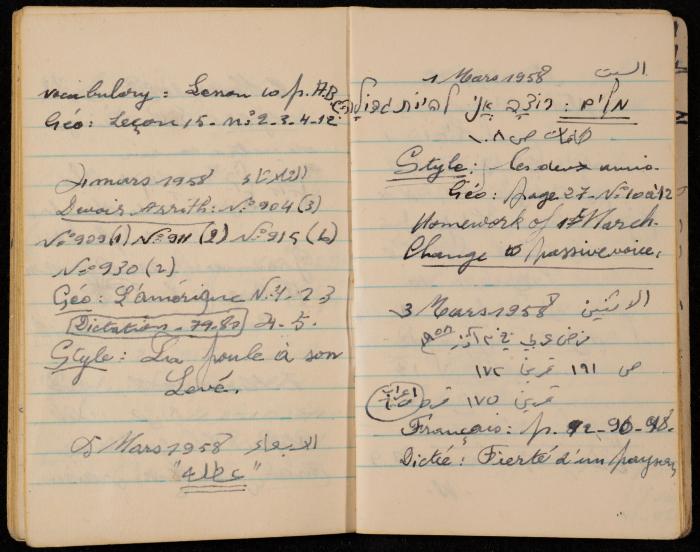 vocabulary : Lesson 10 p.
Géo : Leçon 15 - nº 2-3-4-12
4 mars 1958 الثلاثاء
Devoir Arrith: Nº 904 (3)
Nº 909 (1) Nº 911 (2) Nº 915 (6)
Nº 930 (2)
Géo: L'amérique Nº 1-2 3
Dictation - 79-80 4-5.
Style : La poule à son
Levé.
5 Mars 1958 الاربعاء
"عطلة"
1 Mars 1958 السبت
מלים : רוצה אני להיות גדולה
كلمات ص ١٠٨
Style : les deux amis.
Géo: page 27 - Nº 10 à 12
Homework of 1st March
Change to passive voice.
3 Mars 1958 الاثنين
ص ١٩١ تمرين ١٧٢
تمرين ١٧٥ اعراب
Français: p. 92-96-98.
Dictée : Fierté d'un paysan